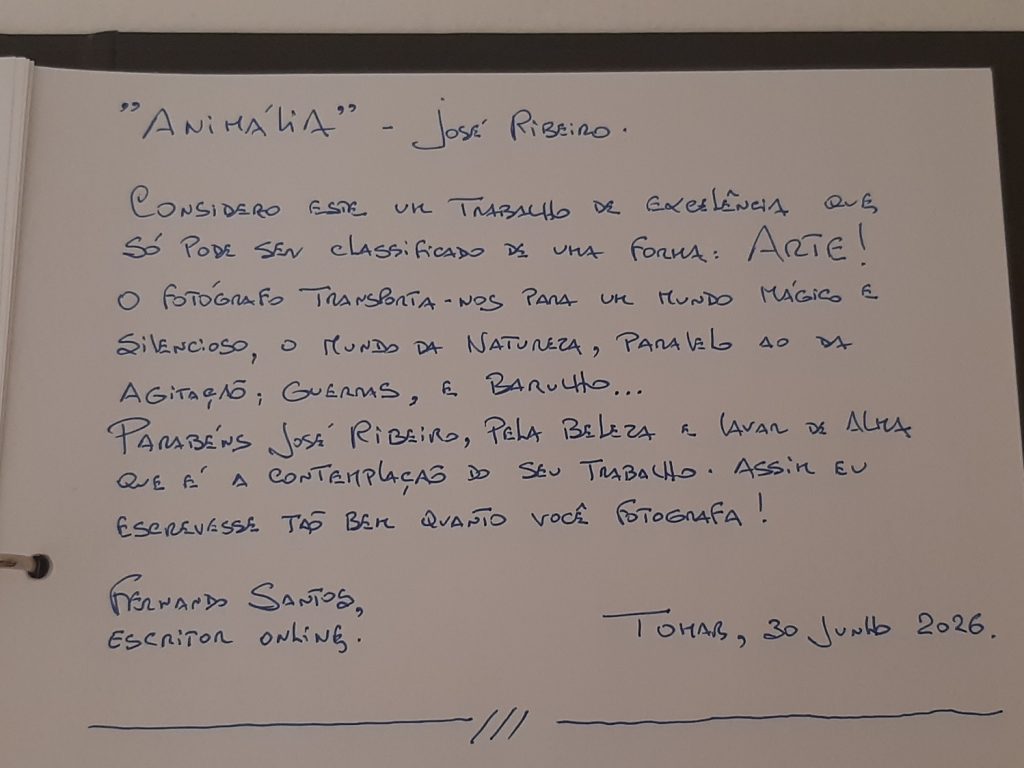 "ANIMÁLIA" - JOSÉ RIBEIRO.
CONSIDERO ESTE UM TRABALHO DE EXCELÊNCIA QUE
SÓ PODE SER CLASSIFICADO DE UMA FORMA: ARTE!
O FOTÓGRAFO TRANSPORTA-NOS PARA UM MUNDO MÁGICO E
SILENCIOSO, O MUNDO DA NATUREZA, PARALELO AO DA
AGITAÇÃO, GUERRAS, E BARULHO...
PARABÉNS JOSÉ RIBEIRO, PELA BELEZA E LAVAR DE ALMA
QUE É A CONTEMPLAÇÃO DO SEU TRABALHO. ASSIM EU
ESCREVESSE TÃO BEM QUANTO VOCÊ FOTOGRAFA!
FERNANDO SANTOS,
ESCRITOR ONLINE.
TOMAR, 30 JUNHO 2026.